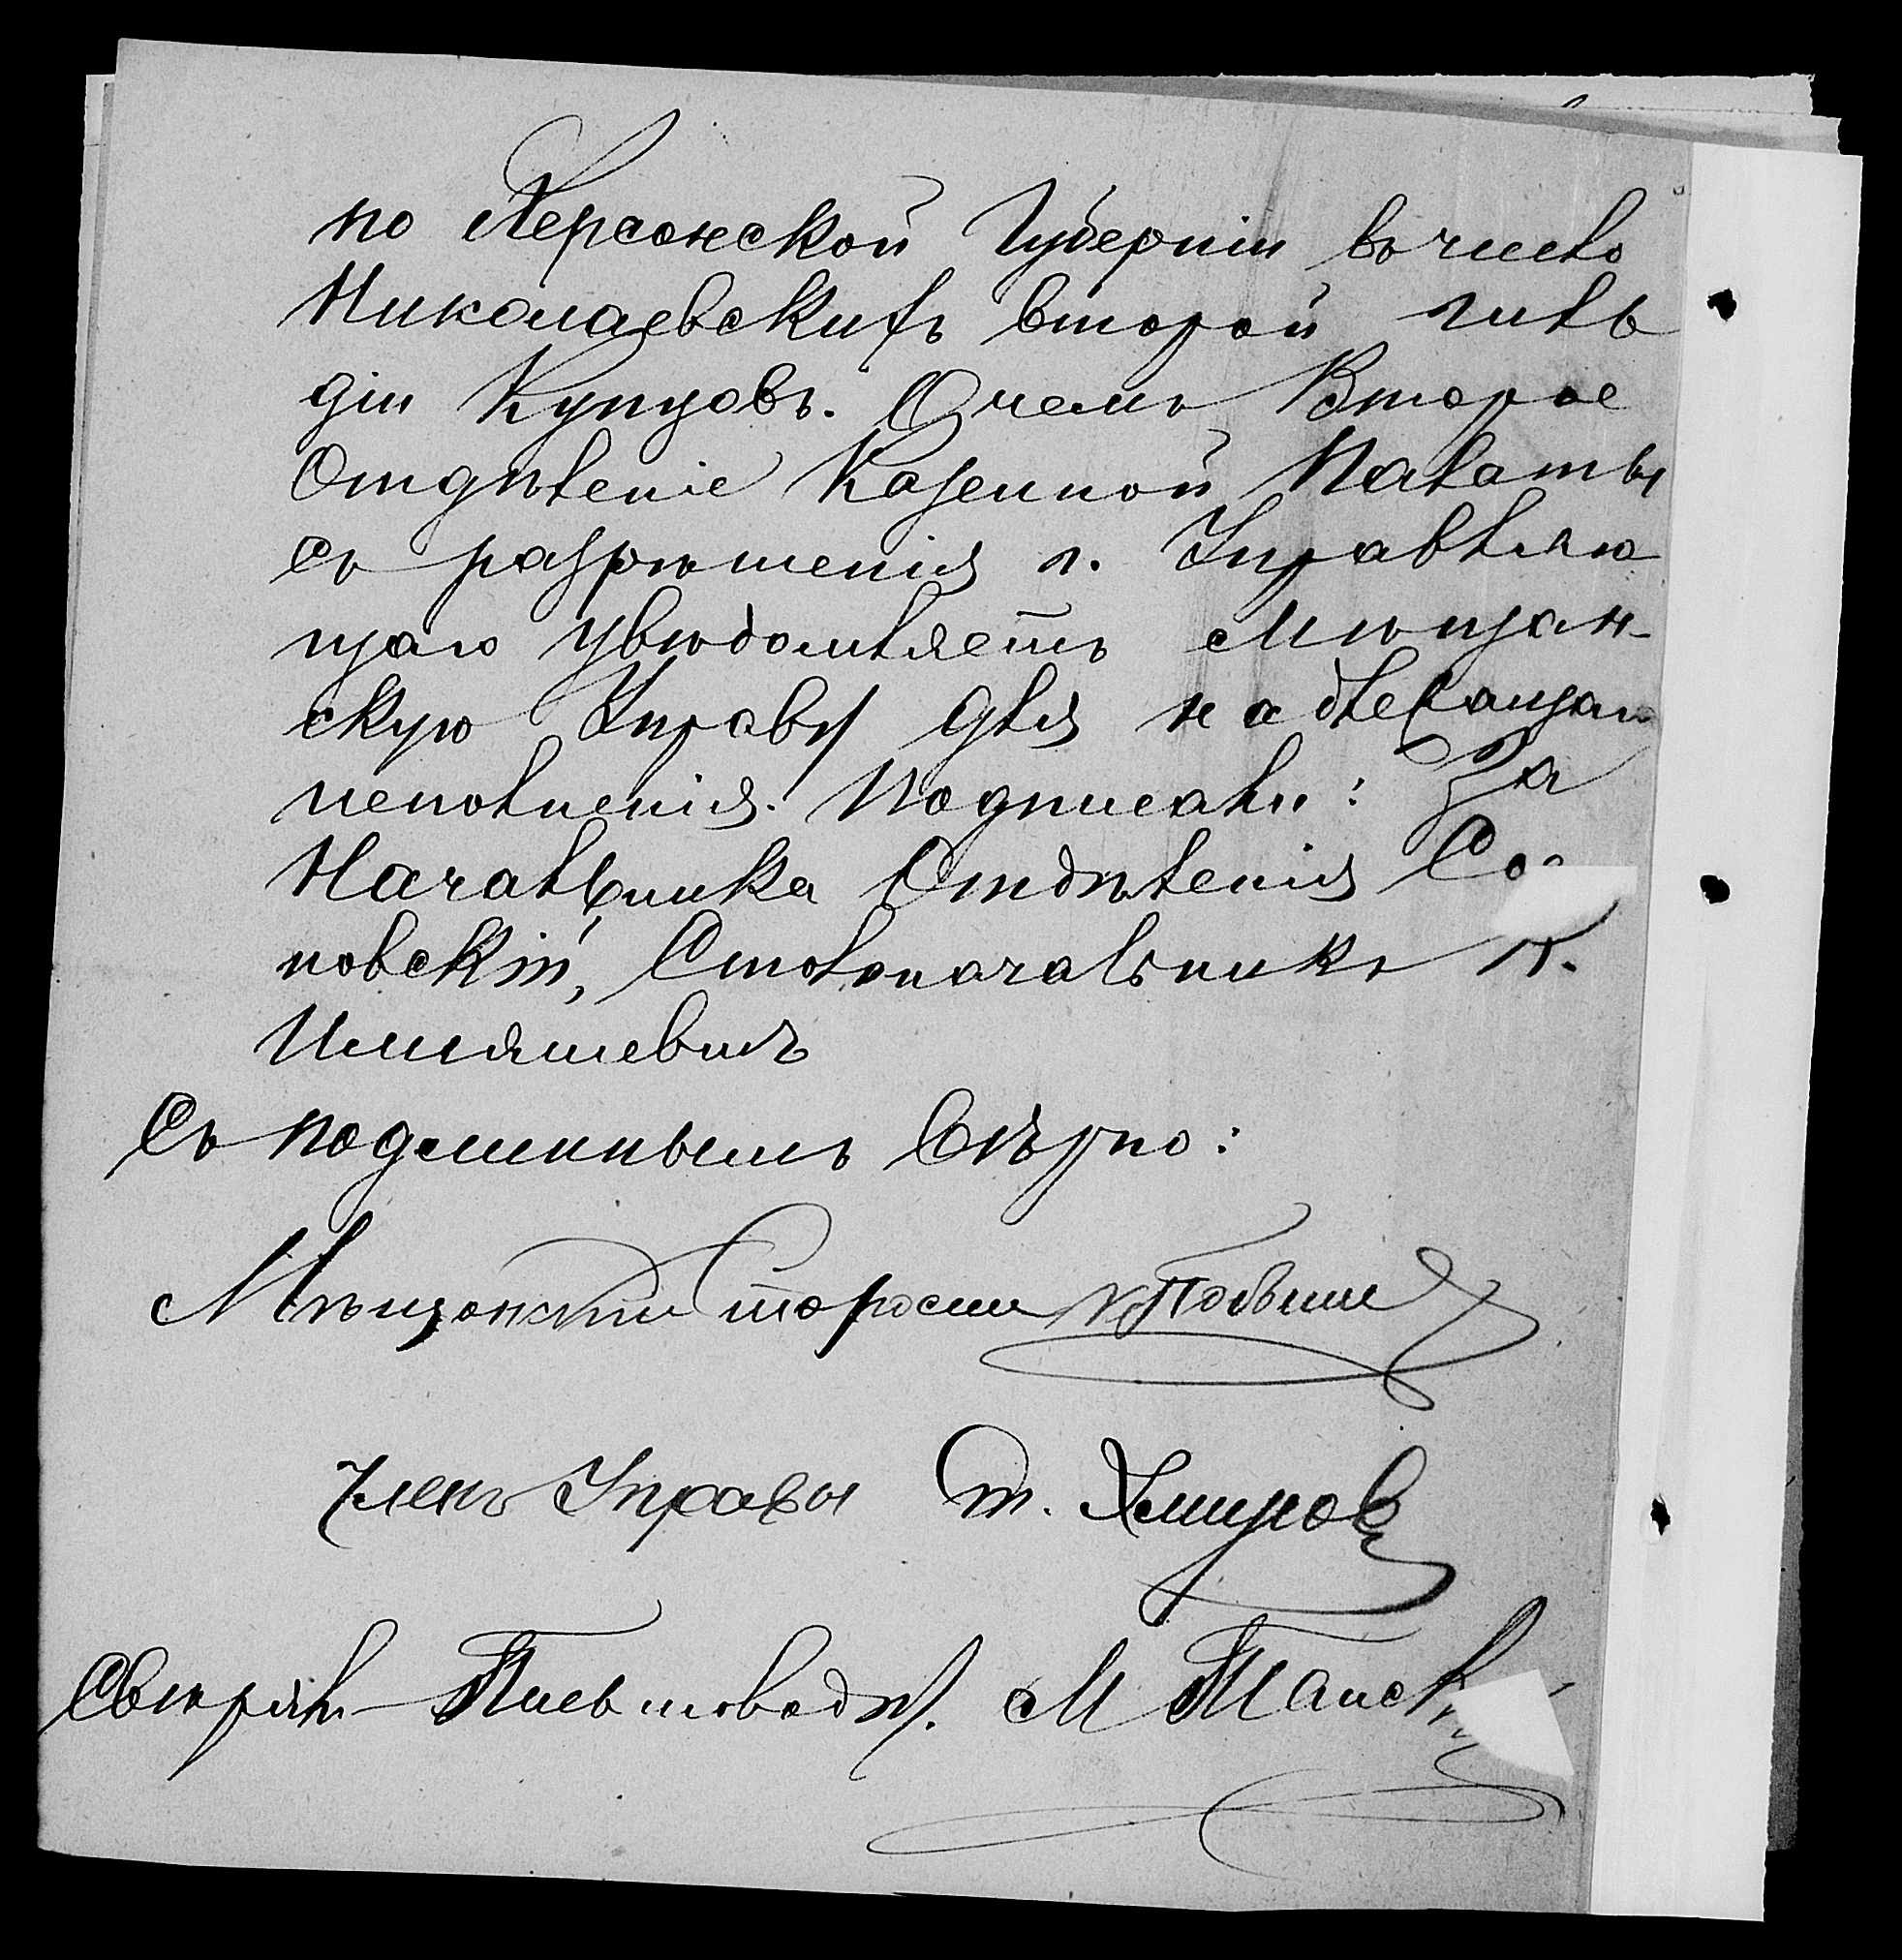 по Херсонской Губерніи въ число
Николаевскихъ второй гиль
діи Купцовъ. О чемъ Второе
Отдѣленіе Казенной Палаты
съ разрѣшенія г. Управляю
щаго увѣдомляетъ Мѣщан-
скую Управу для надлежащаго
исполненія. Подписали: За
Начальника Отдѣленія Со
новскій, Столоначальникъ П.
Имшяшевичъ
Съ подлиннымъ вѣрно:
Мѣщанскій Староста
Членъ Управы Т. Хмуров
Свѣрялъ Письмоводит. М